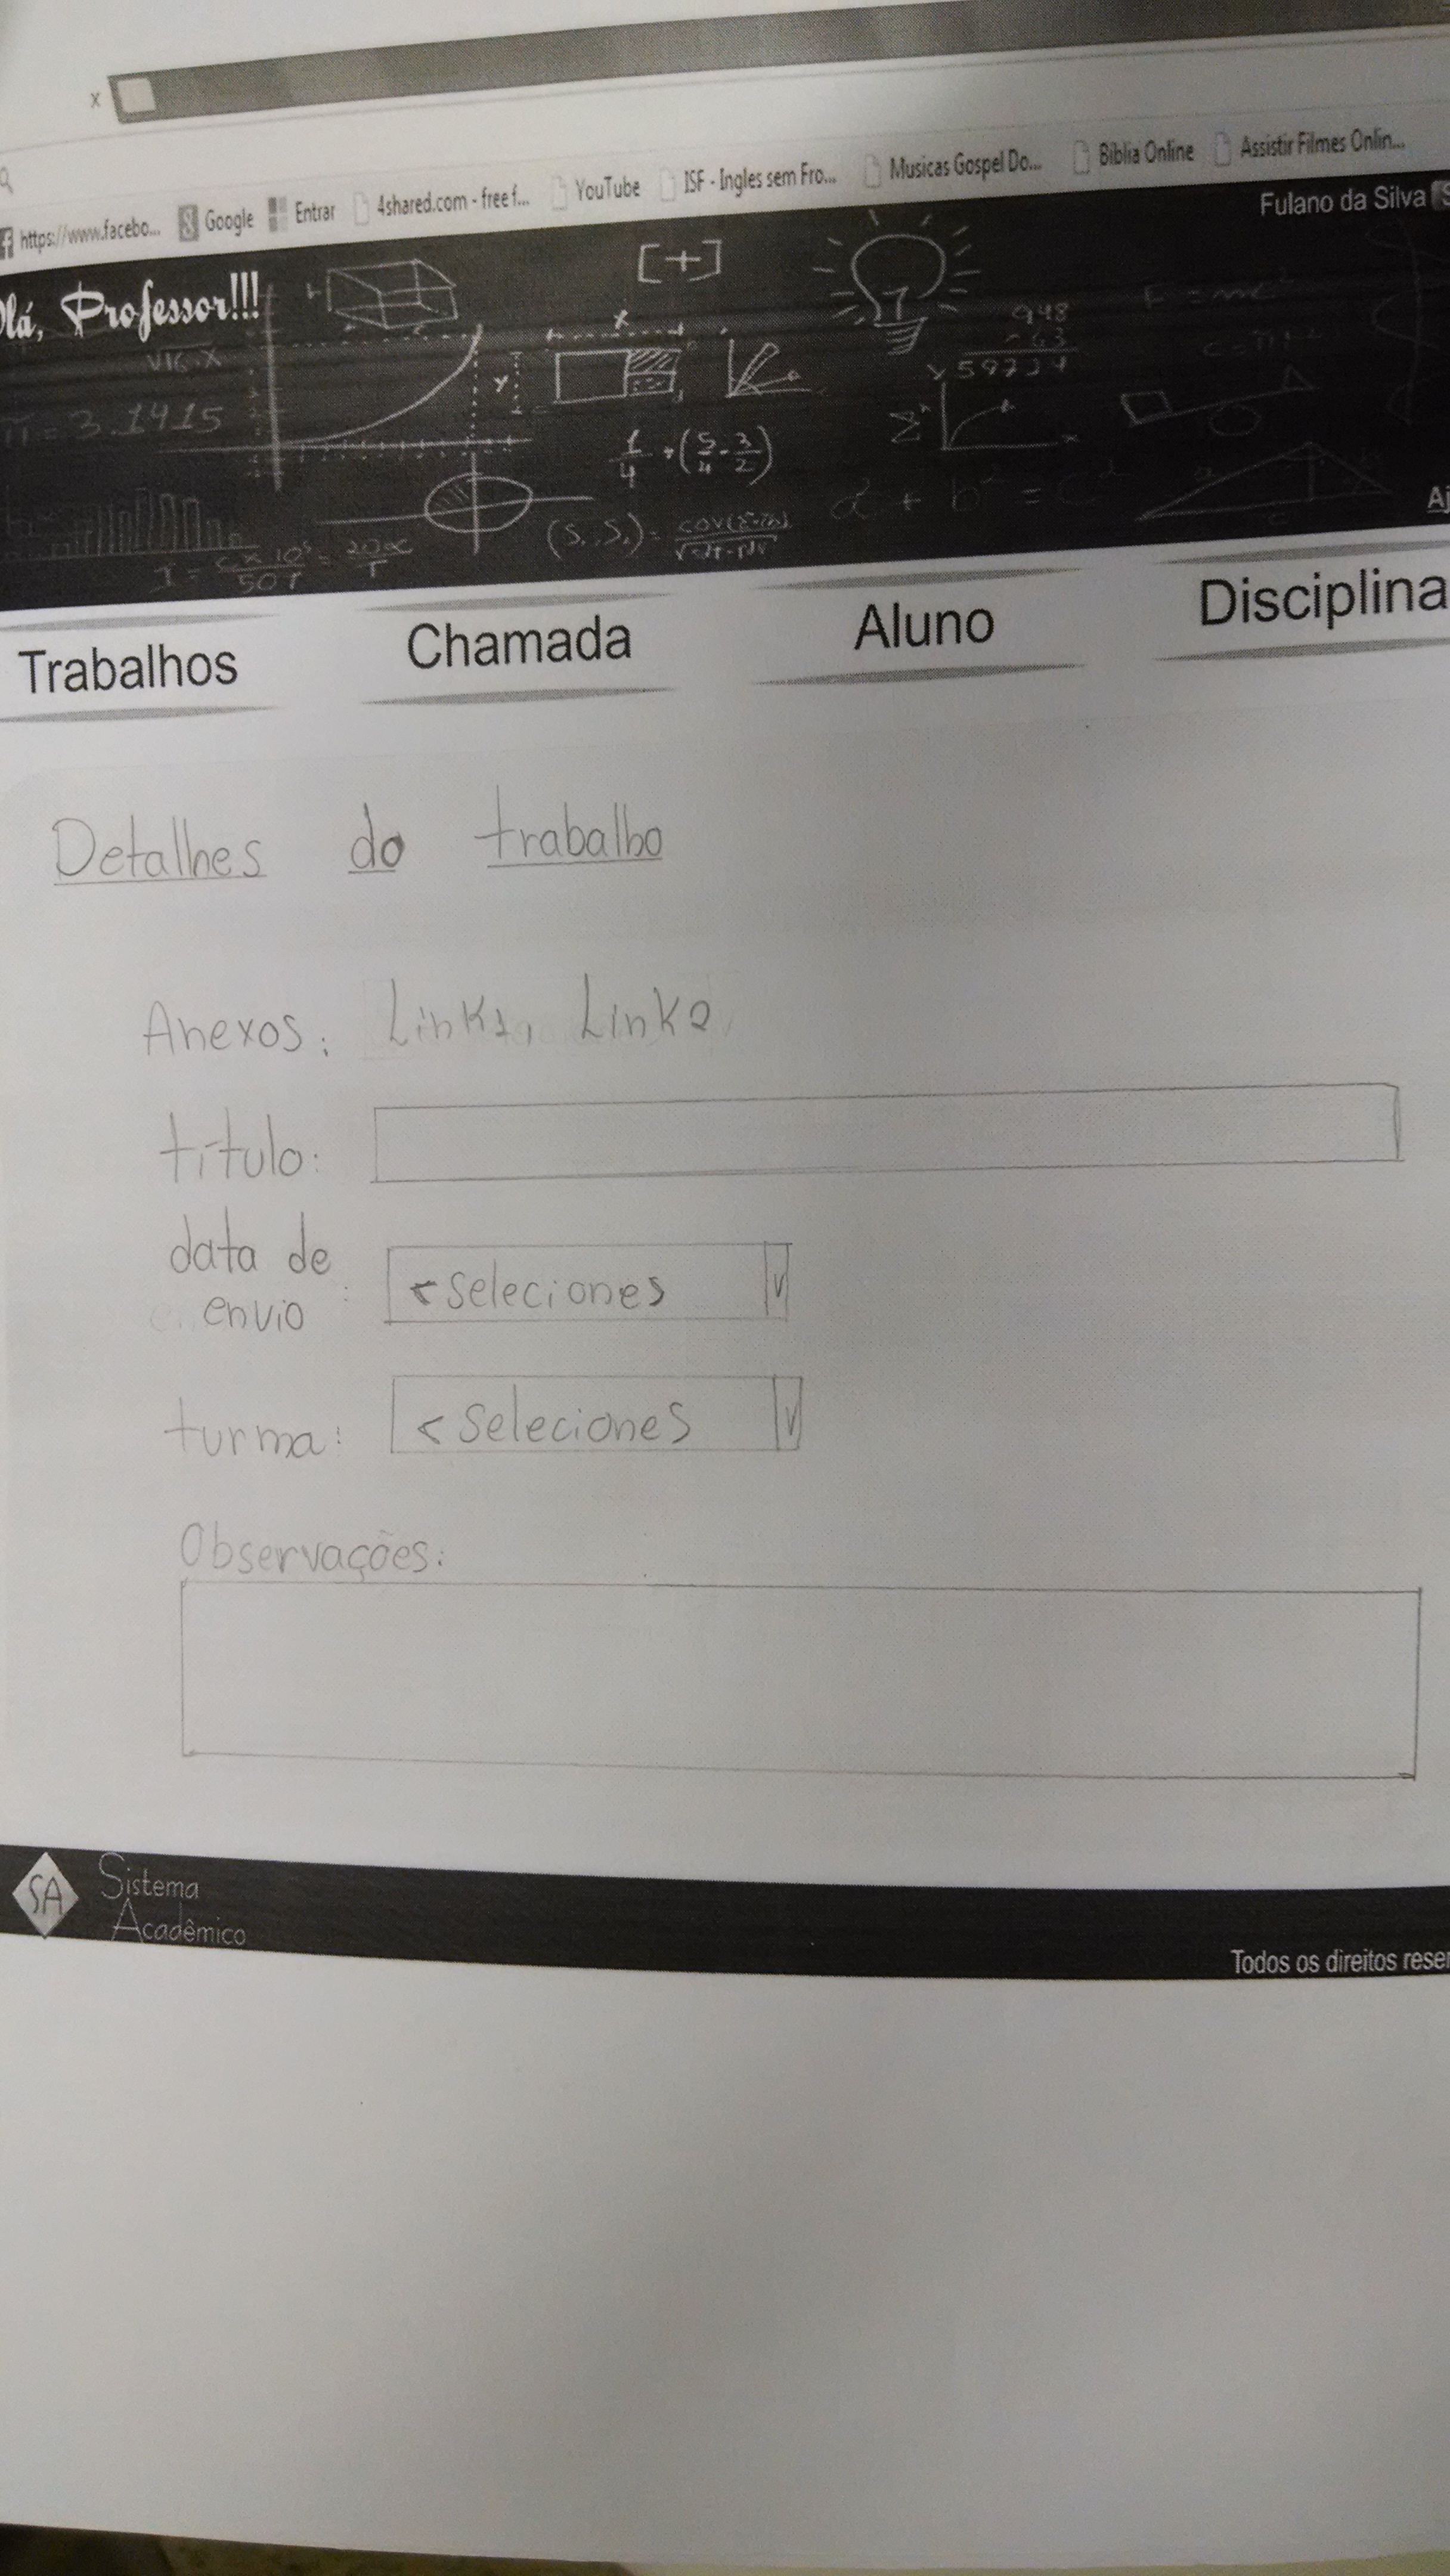 x
https://www.facebo... Google Entrar 4shared.com - free f... YouTube ISF - Ingles sem Fro... Musicas Gospel Do... Bíblia Online Assistir Filmes Onlin...
Fulano da Silva
lá, Professor!!!
[+]
x
948
√16.x
59234
Y
π = 3.1415
Σ
1/4 + (5/4 - 3/2)
a² + b² = c²
Aj
50T
Trabalhos Chamada Aluno Disciplina
Detalhes do trabalho
Anexos: Link1, Link2
título:
data de
envio :
<seleciones V
turma: <seleciones V
Observações:
SA Sistema
Acadêmico
Todos os direitos reser